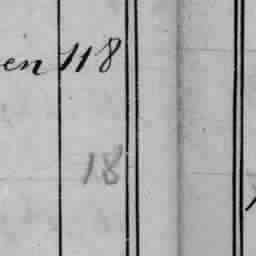 en 118
18